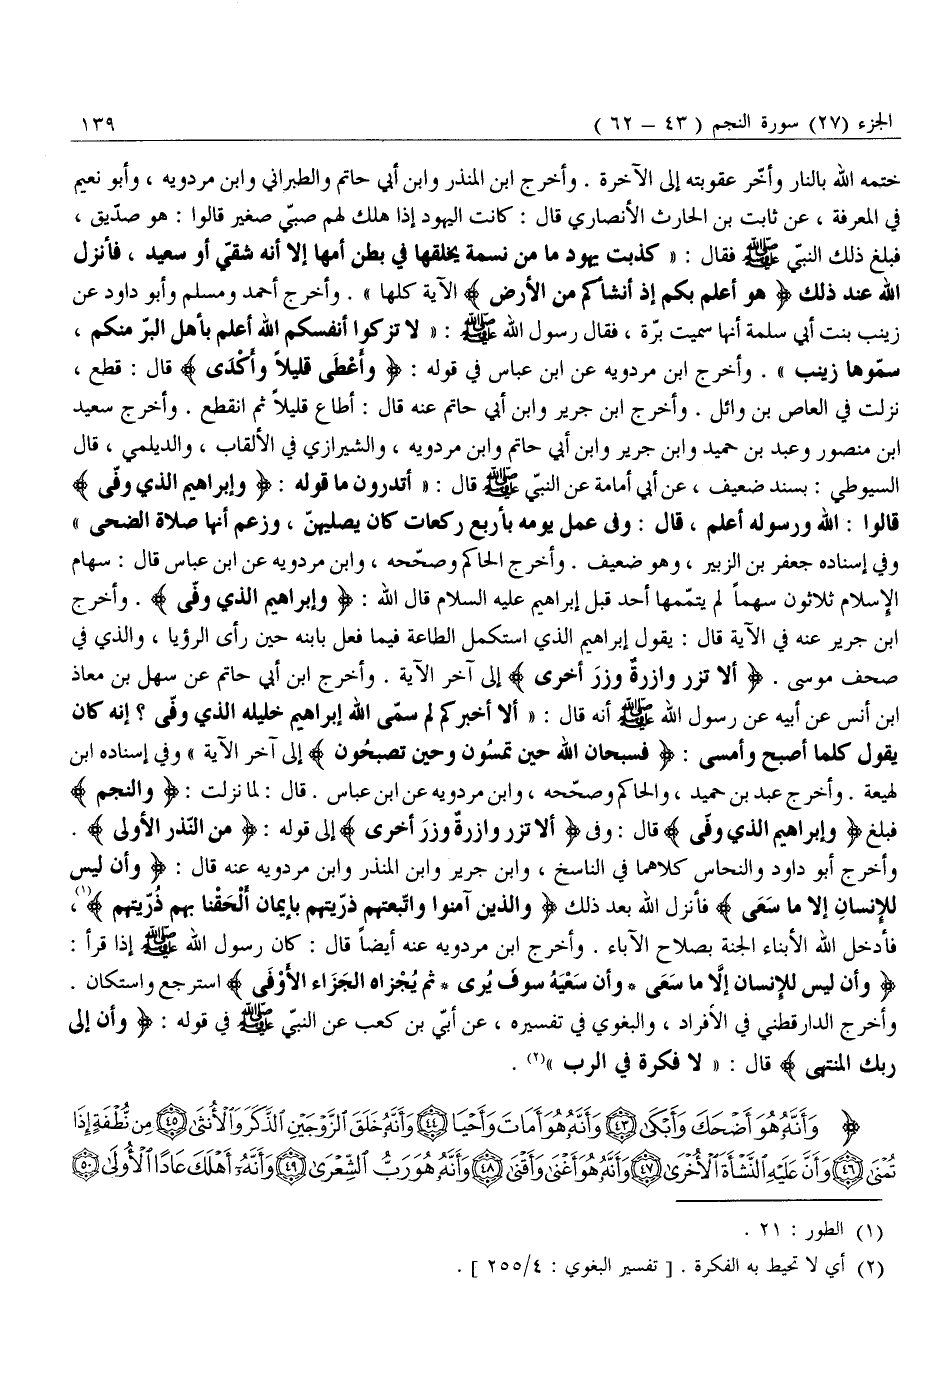 الجزء (٢٧) سورة النجم ( ٤٣ – ٦٢ ) ١٣٩
ختمه الله بالنار وأخّر عقوبته إلى الآخرة . وأخرج ابن المنذر وابن أبي حاتم والطبراني وابن مردويه ، وأبو نعيم
في المعرفة ، عن ثابت بن الحارث الأنصاري قال : كانت اليهود إذا هلك لهم صبيّ صغير قالوا : هو صدّيق ،
فبلغ ذلك النبيّ ﷺ فقال : « كذبت يهود ما من نسمة يخلقها في بطن أمها إلا أنه شقيّ أو سعيد ، فأنزل
الله عند ذلك ﴿ هو أعلم بكم إذ أنشأكم من الأرض ﴾ الآية كلها » . وأخرج أحمد ومسلم وأبو داود عن
زينب بنت أبي سلمة أنها سميت برّة ، فقال رسول الله ﷺ : « لا تزكوا أنفسكم الله أعلم بأهل البرّ منكم ،
سمّوها زينب » . وأخرج ابن مردويه عن ابن عباس في قوله : ﴿ وأَعْطَى قليلاً وأَكْدَى ﴾ قال : قطع ،
نزلت في العاص بن وائل . وأخرج ابن جرير وابن أبي حاتم عنه قال : أطاع قليلاً ثم انقطع . وأخرج سعيد
ابن منصور وعبد بن حميد وابن جرير وابن أبي حاتم وابن مردويه ، والشيرازي في الألقاب ، والديلمي ، قال
السيوطي : بسند ضعيف ، عن أبي أمامة عن النبيّ ﷺ قال : « أتدرون ما قوله : ﴿ وإبراهيم الذي وفّى ﴾
قالوا : الله ورسوله أعلم ، قال : وفى عمل يومه بأربع ركعات كان يصليهنّ ، وزعم أنها صلاة الضحى »
وفي إسناده جعفر بن الزبير ، وهو ضعيف . وأخرج الحاكم وصحّحه ، وابن مردويه عن ابن عباس قال : سهام
الإسلام ثلاثون سهماً لم يتمّمها أحد قبل إبراهيم عليه السلام قال الله : ﴿ وإبراهيم الذي وفّى ﴾ . وأخرج
ابن جرير عنه في الآية قال : يقول إبراهيم الذي استكمل الطاعة فيما فعل بابنه حين رأى الرؤيا ، والذي في
صحف موسى . ﴿ ألا تزر وازرةٌ وزرَ أخرى ﴾ إلى آخر الآية . وأخرج ابن أبي حاتم عن سهل بن معاذ
ابن أنس عن أبيه عن رسول الله ﷺ أنه قال : « ألا أخبركم لم سمّى الله إبراهيم خليله الذي وفّى ؟ إنه كان
يقول كلما أصبح وأمسى : ﴿ فسبحان الله حين تمسُون وحين تصبحُون ﴾ إلى آخر الآية » وفي إسناده ابن
لهيعة . وأخرج عبد بن حميد ، والحاكم وصحّحه ، وابن مردويه عن ابن عباس . قال : لما نزلت : ﴿ والنجم ﴾
فبلغ ﴿ وإبراهيم الذي وفّى ﴾ قال : وفى ﴿ ألا تزر وازرةٌ وزرَ أخرى ﴾ إلى قوله : ﴿ من النّذر الأولى ﴾ .
وأخرج أبو داود والنحاس كلاهما في الناسخ ، وابن جرير وابن المنذر وابن مردويه عنه قال : ﴿ وأن ليس
للإنسانِ إلا ما سَعَى ﴾ فأنزل الله بعد ذلك ﴿ والذين آمنوا واتبعتهم ذرّيتهم بإيمان أَلْحَقْنا بهم ذُرّيتهم ﴾(١) ،
فأدخل الله الأبناء الجنة بصلاح الآباء . وأخرج ابن مردويه عنه أيضاً قال : كان رسول الله ﷺ إذا قرأ :
﴿ وأن ليس للإنسان إلَّا ما سَعَى * وأن سَعْيَهُ سوفَ يُرى * ثم يُجْزاه الجَزَاء الأَوْفَى ﴾ استرجع واستكان .
وأخرج الدارقطني في الأفراد ، والبغوي في تفسيره ، عن أبيّ بن كعب عن النبيّ ﷺ في قوله : ﴿ وأن إلى
ربك المنتهى ﴾ قال : « لا فكرة في الرب »(٢) .
﴿ وَأَنَّهُۥ هُوَ أَضْحَكَ وَأَبْكَىٰ ٤٣ وَأَنَّهُۥ هُوَ أَمَاتَ وَأَحْيَا ٤٤ وَأَنَّهُۥ خَلَقَ ٱلزَّوْجَيْنِ ٱلذَّكَرَ وَٱلْأُنثَىٰ ٤٥ مِن نُّطْفَةٍ إِذَا
تُمْنَىٰ ٤٦ وَأَنَّ عَلَيْهِ ٱلنَّشْأَةَ ٱلْأُخْرَىٰ ٤٧ وَأَنَّهُۥ هُوَ أَغْنَىٰ وَأَقْنَىٰ ٤٨ وَأَنَّهُۥ هُوَ رَبُّ ٱلشِّعْرَىٰ ٤٩ وَأَنَّهُۥٓ أَهْلَكَ عَادًا ٱلْأُولَىٰ ٥٠
(١) الطور : ٢١ .
(٢) أي لا تحيط به الفكرة . [ تفسير البغوي : ٢٥٥/٤ ] .